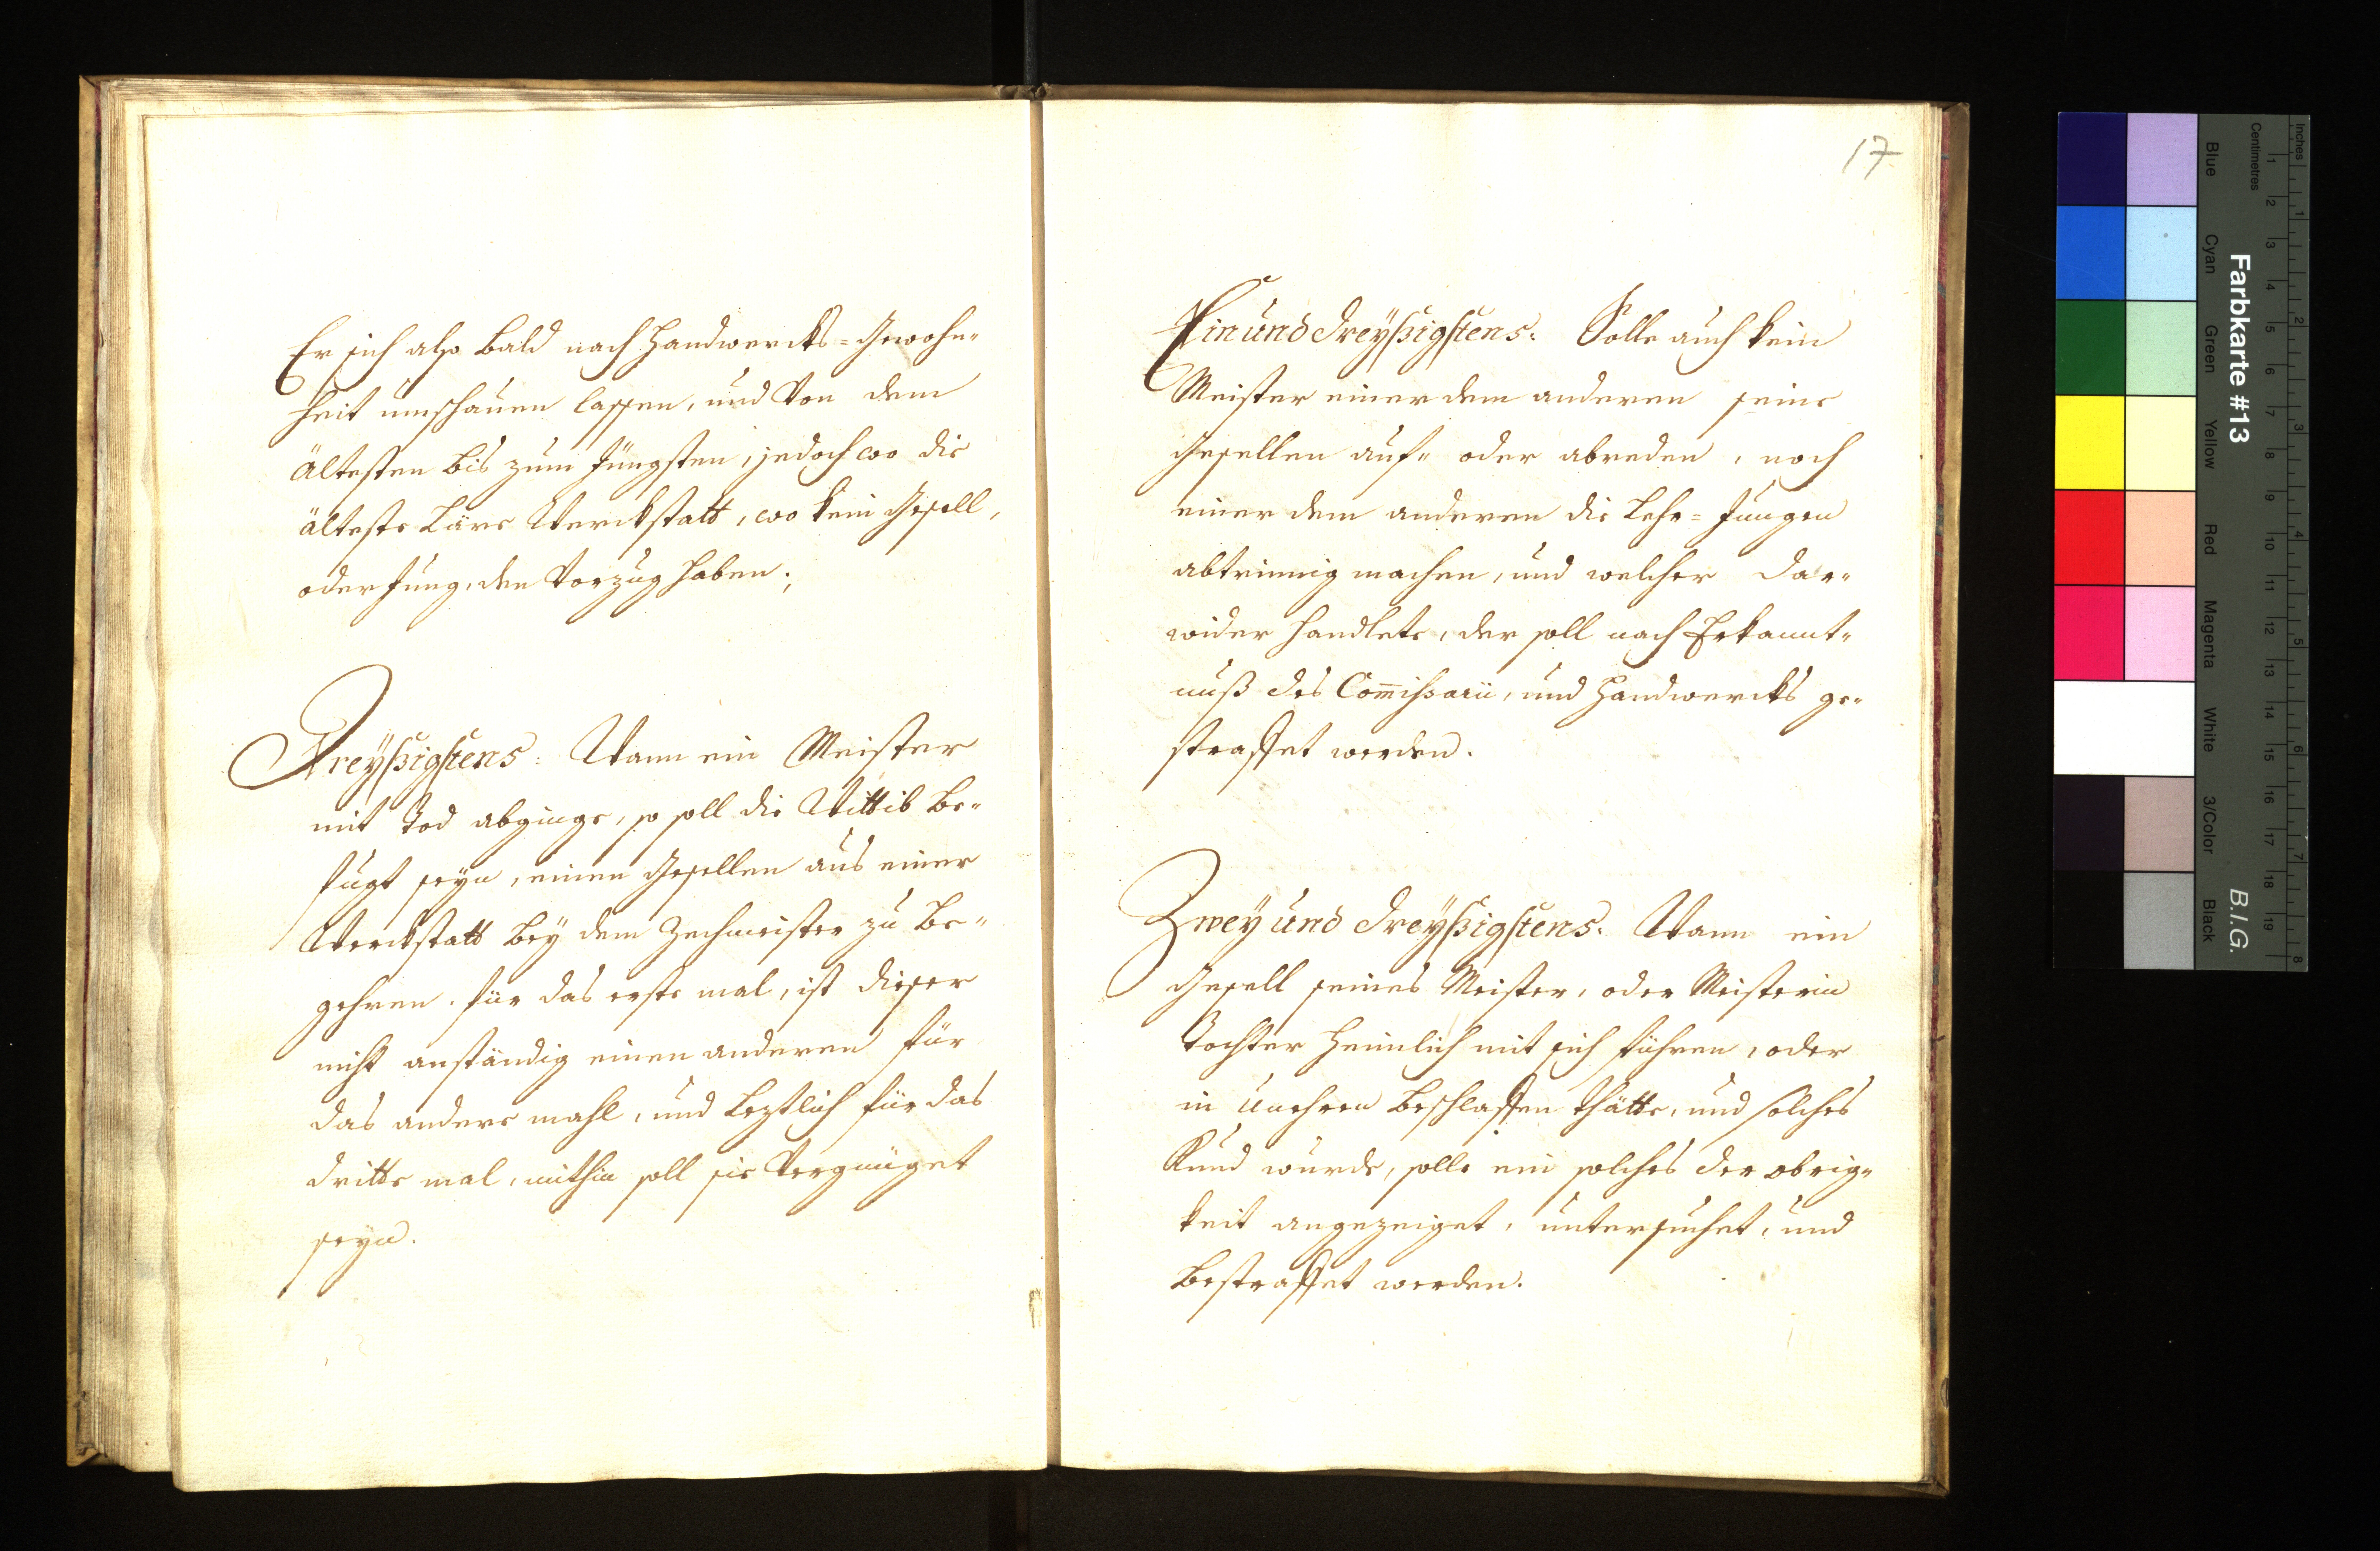 Er sich also bald nach Handwercks=Gewohn„
heit umschauen lassen, und von dem
ältesten bis zum Jüngsten, jedoch wo die
älteste Läre Werckstatt, wo kein Gesell,
oder Jung, den Vorzug haben;
Dreyßigstens: Wann ein Meister
mit Tod abginge, so soll die Wittib be„
fugt seyn, einen Gesellen aus einer
Werckstatt bey dem Zechmeister zu be„
gehren. für das erste mal, ist dieser
nicht anständig einen anderen für
das andere mahl, und leztlich für das
dritte mal, mithin soll sie Vergnüget
seyn.
17
Ein und dreyßigstens: Solle auch kein
Meister einer dem anderen seine
Gesellen auf„ oder abreden, noch
einer dem anderen die Lehr=Jungen
abtrinnig machen, und welcher dar„
wider handlete, der soll nach Erkannt„
nuß des Com̄ißarii, und Handwercks ge„
straffet werden.
Zwey und dreyßigstens. Wann ein
Gesell seines Meister, oder Meisterin
Tochter heimlich mit sich führen, oder
in Unehren beschlaffen thätte, und solches
Kund wurde, solle ein solches der obrig„
keit angezeiget, untersuchet, und
bestraffet werden.
Farbkarte #13
B.I.G.
Inches
1 2 3 4 5 6 7 8
Centimetres
1 2 3 4 5 6 7 8 9 10 11 12 13 14 15 16 17 18 19
Blue
Cyan
Green
Yellow
Red
Magenta
White
3/Color
Black